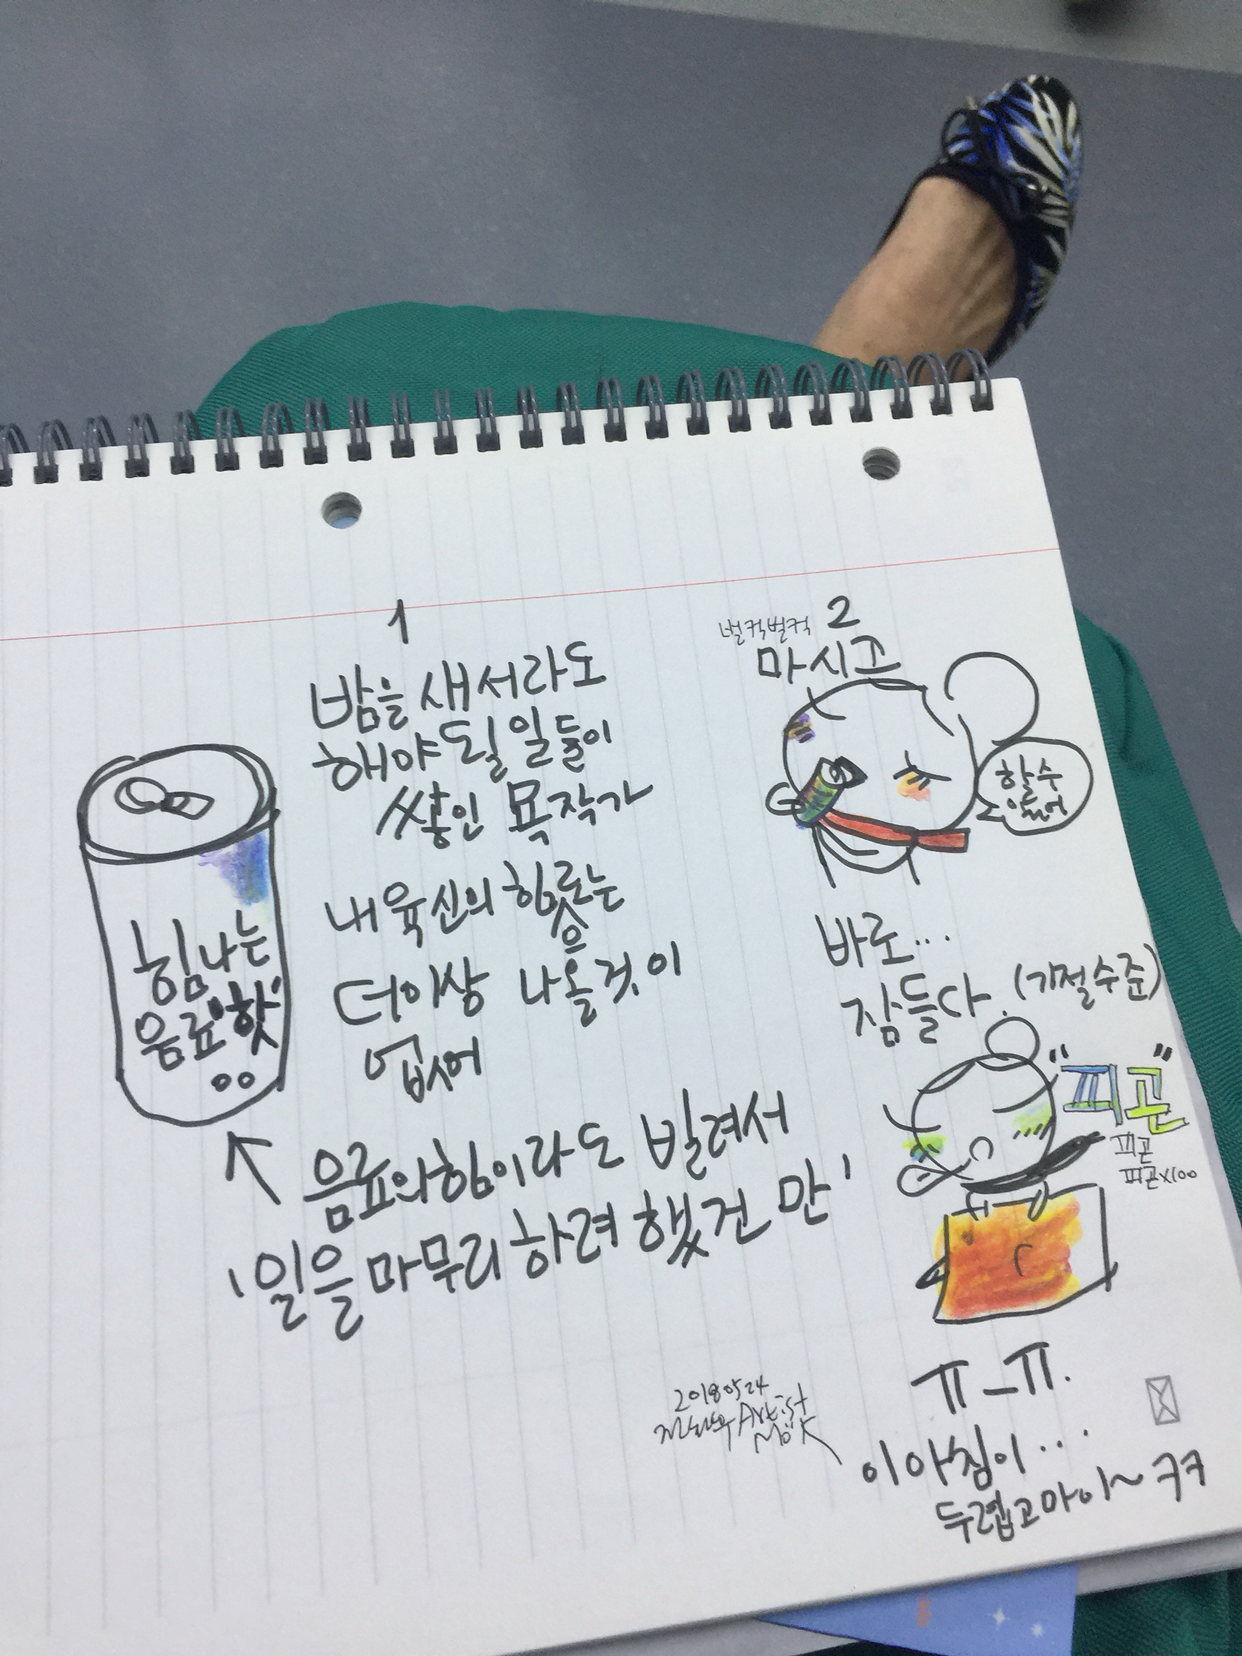 1
밤을 새서라도
해야 될 일들이
쌓인 목작가
내 육신의 힘로는
으
더이상 나올것이
없어
힘나는
음료"핫"
음료의 힘이라도 빌려서
'일을 마무리 하려 했건만'
2
벌컥벌컥
마시고
할수
있어
바로...
잠들다. (기절수준)
"피곤"
피곤
피곤x100
ㅠ_ㅠ.
이아침이...
두렵고마이~ ㅋㅋ
20180524
Artist
MoK